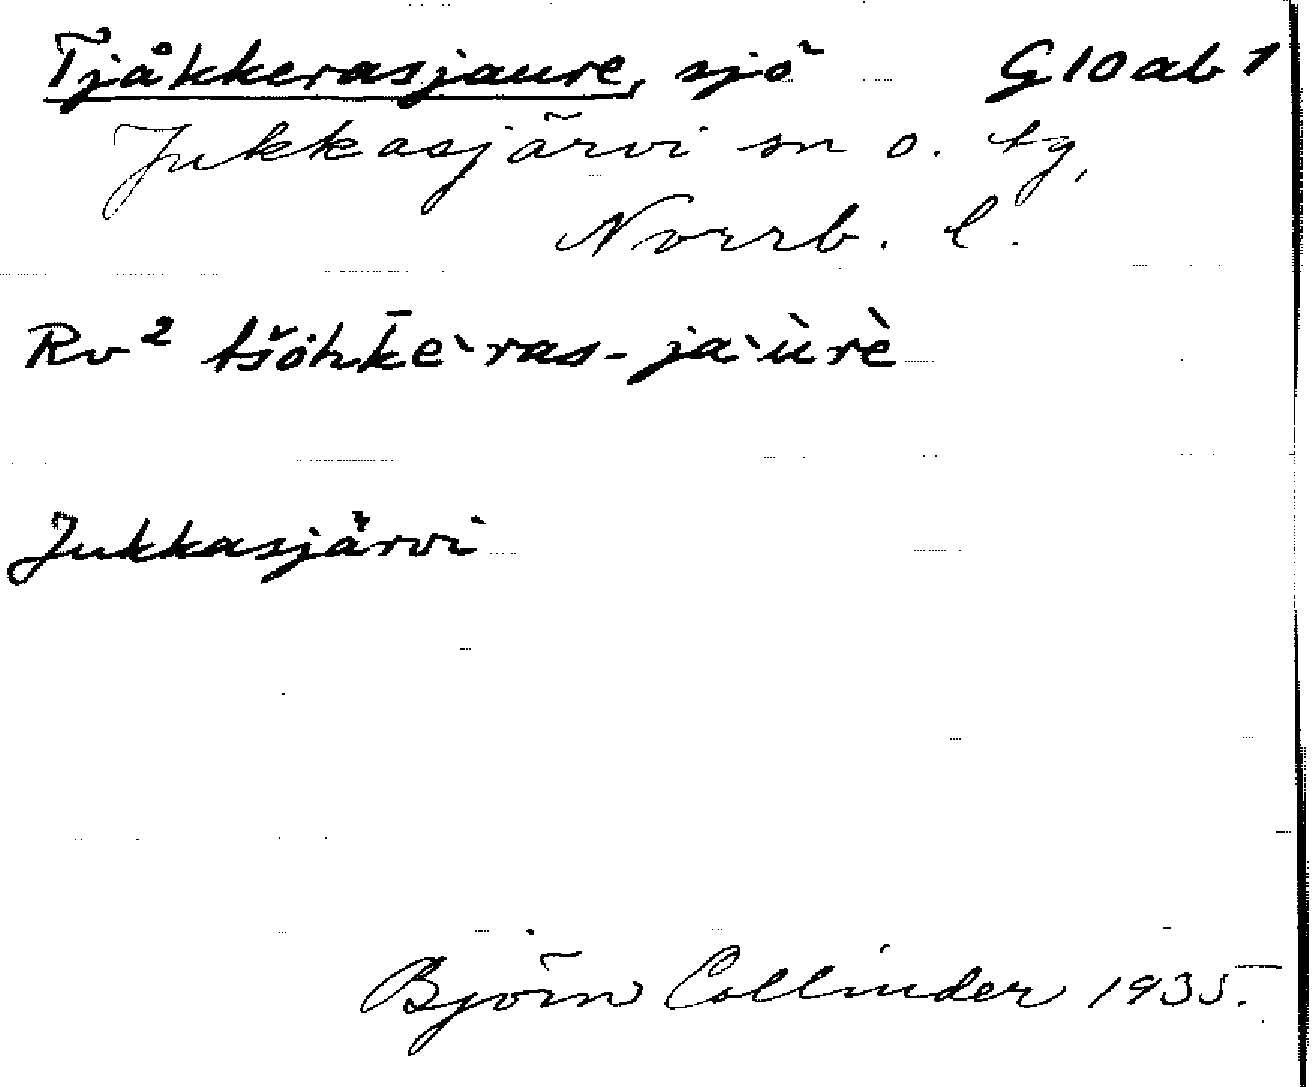 Tjåkkerasjaure, sjö G10ab1
Jukkasjärvi sn o. tg,
Norrb. l.
Rv² tšȯhk̄e`ras-ja`ùrè
Jukkasjärvi
Björn Collinder 1935.